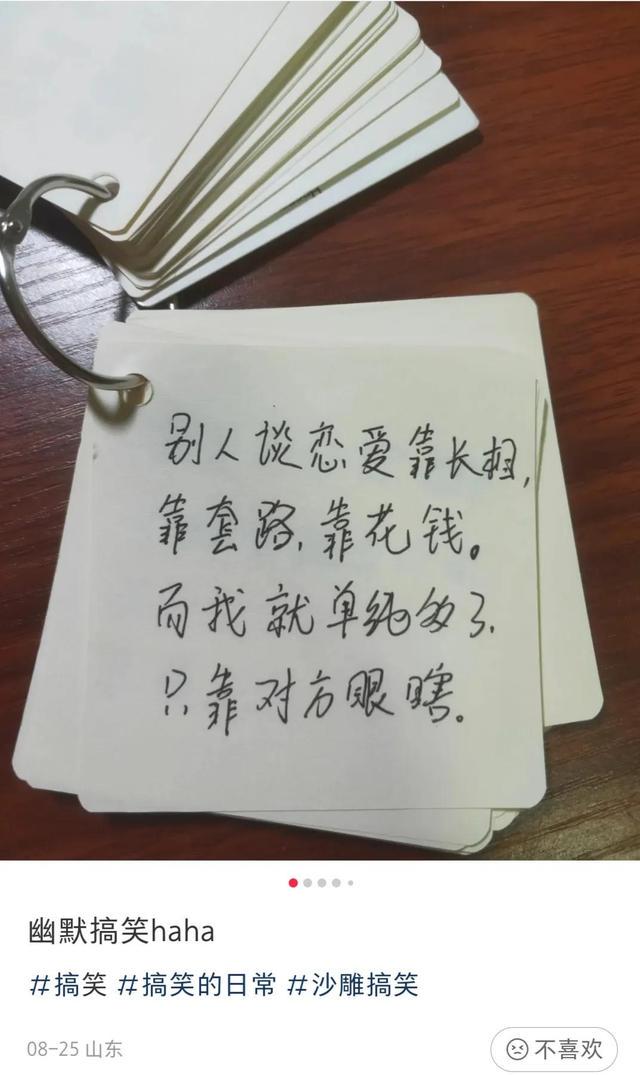 别人谈恋爱靠长相,
靠套路,靠花钱。
而我就单纯多了,
只靠对方眼瞎。
幽默搞笑haha
#搞笑 #搞笑的日常 #沙雕搞笑
08-25 山东
不喜欢